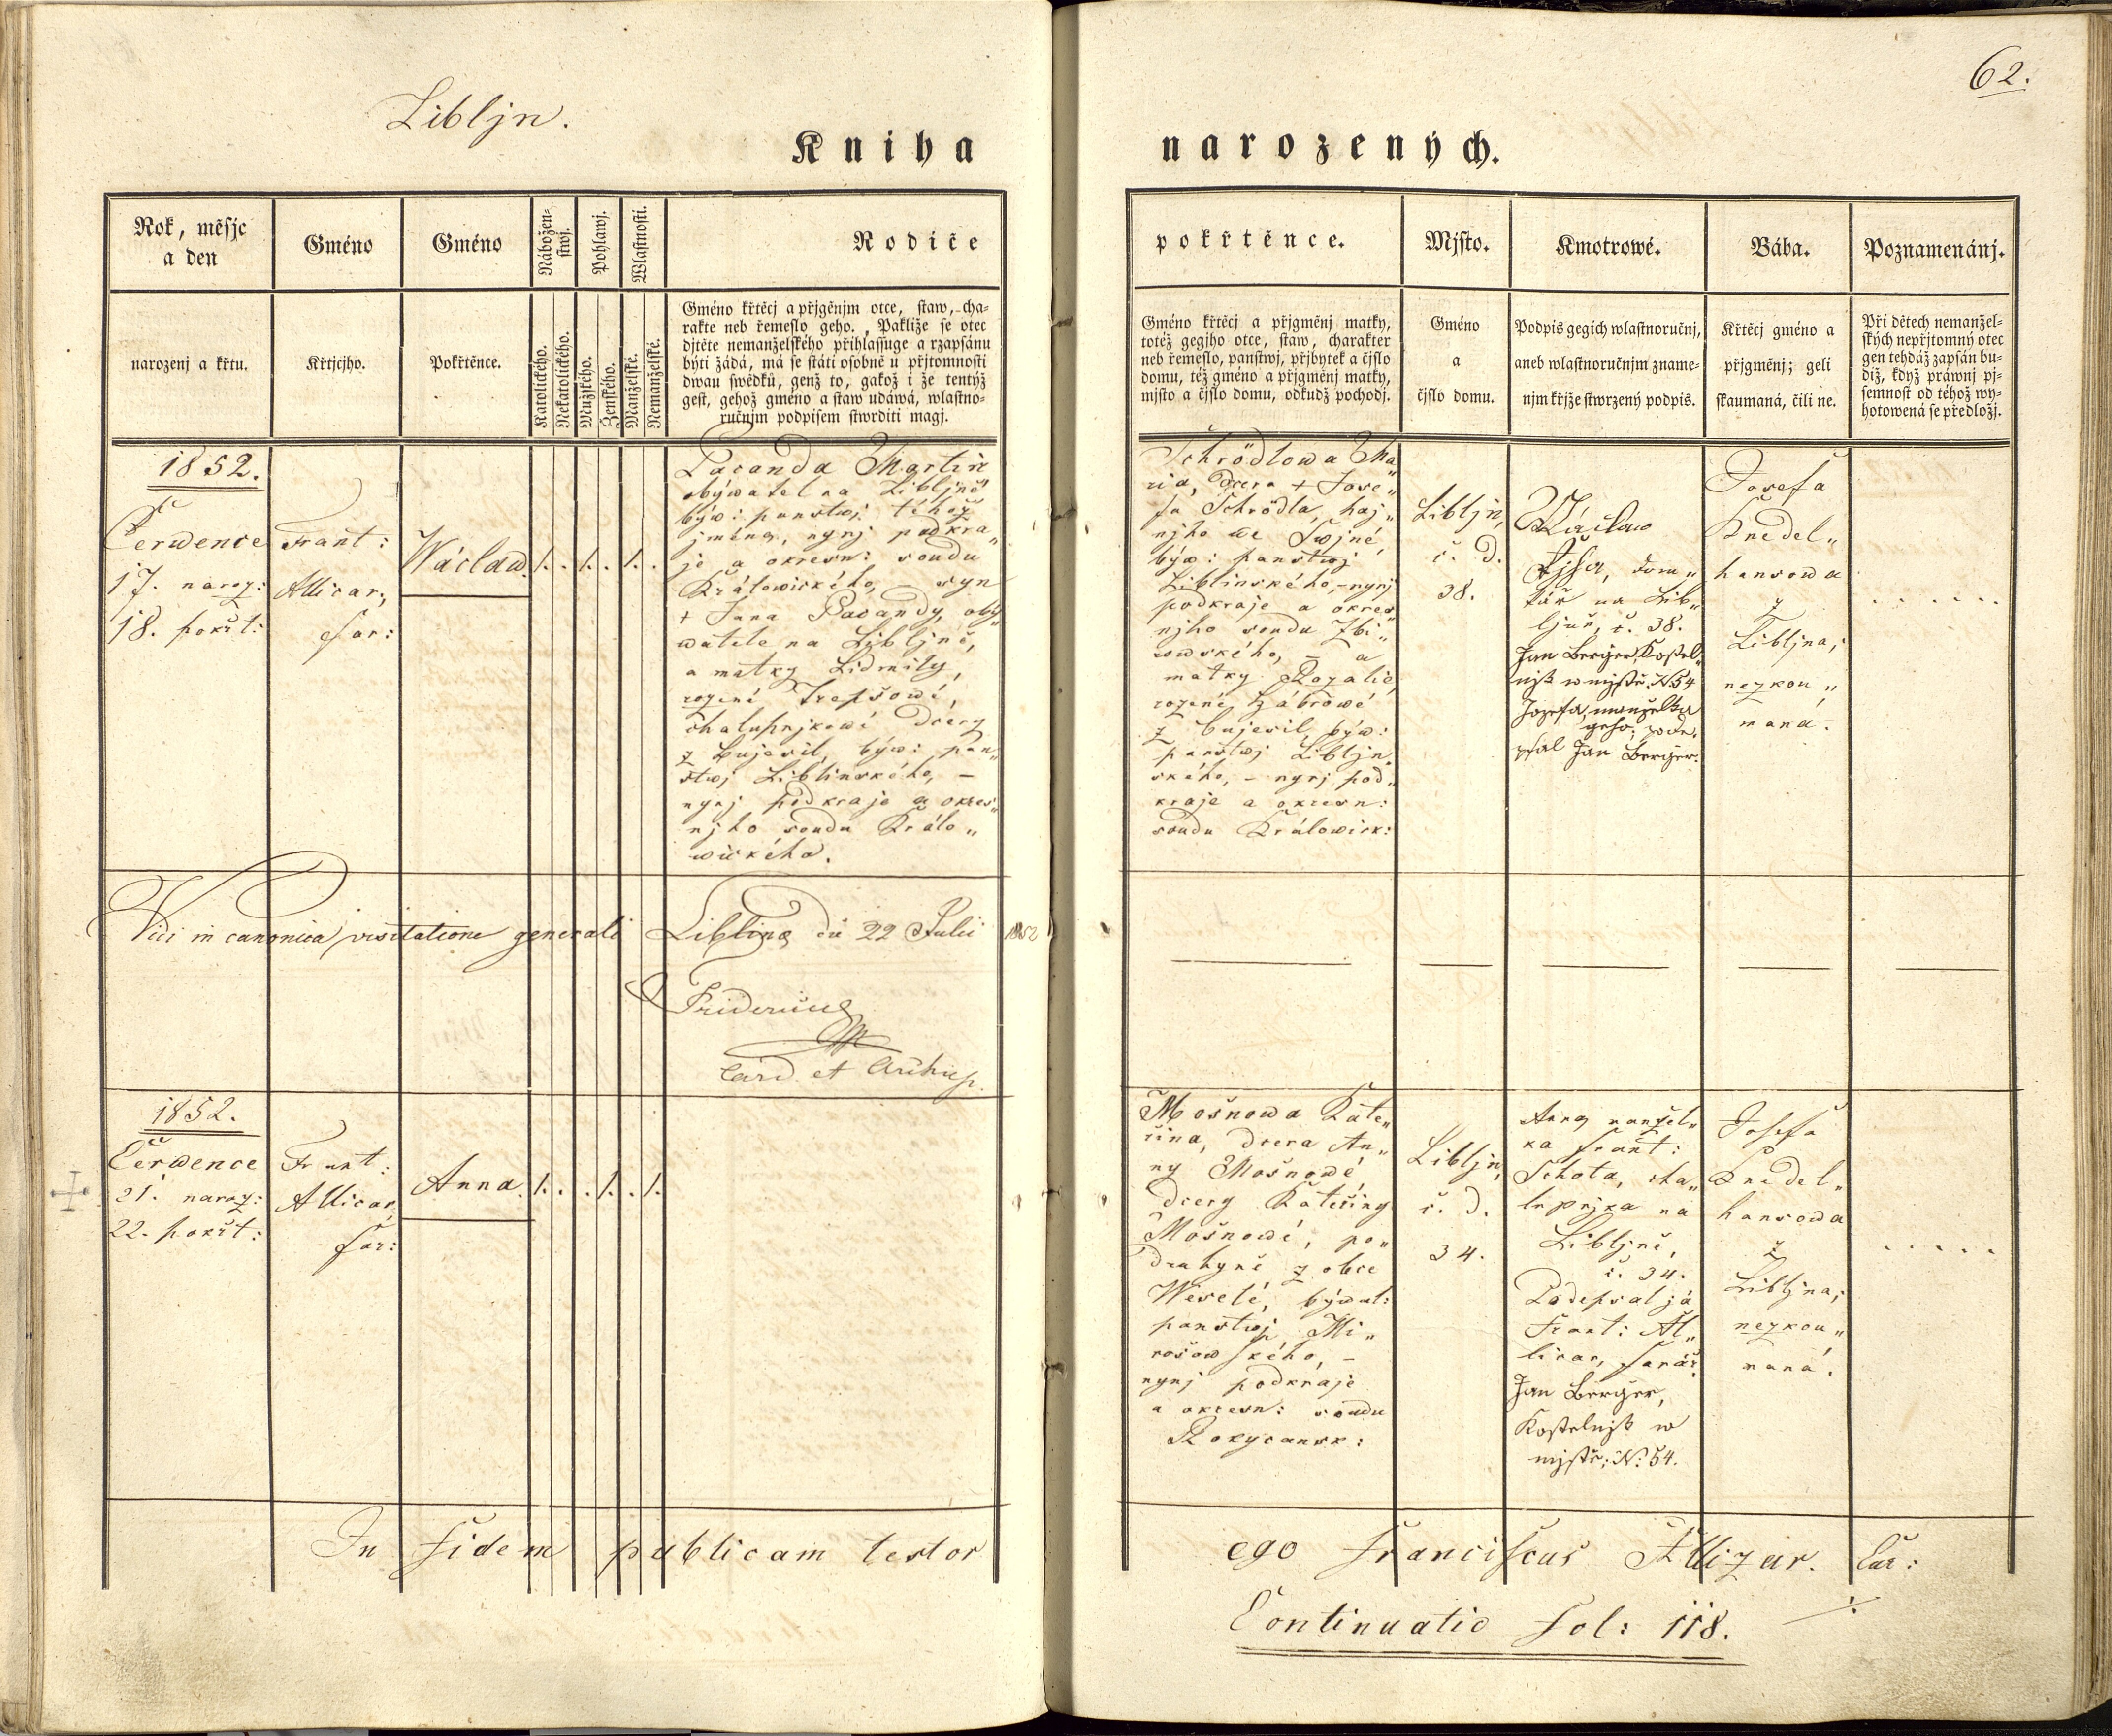 Libljn.
62.
Kniha narozených.
Rok, měsjc
a den
Gméno
Gméno
Nábožen-
stwj.
Pohlawj.
Wlastnosti.
Rodiče
pokřtěnce.
Mjsto.
Kmotrowé.
Bába.
Poznamenánj.
narozenj a křtu.
Křtjcjho.
Pokřtěnce.
Katolického.
Nekatolického.
Mužského.
Ženského.
Manželské.
Nemanželské.
Gméno křtěcj a přjgěnjm otce, staw, cha-
rakte neb řemeslo geho. Pakliže se otec
djtěte nemanželského přihlassuge a rzapsánu
býti žádá, má se státi osobně u přjtomnosti
dwau swědků, genž to, gakož i že tentýž
gest, gehož gméno a staw udáwá, wlastno-
ručnjm podpisem stwrditi magj.
Gméno křtěcj a přjgměnj matky,
totéž gegjho otce, staw, charakter
neb řemeslo, panstwj, přjbytek a čjslo
domu, též gméno a přjgměnj matky,
mjsto a čjslo domu, odkudž pochodj.
Gméno
a
čjslo domu.
Podpis gegich wlastnoručnj,
aneb wlastnoručnjm zname-
njm křjže stwrzený podpis.
Křtěcj gméno a
přjgměnj; geli
skaumaná, čili ne.
Při dětech nemanžel-
ských nepřjtomný otec
gen tehdáž zapsán bu-
diž, když práwnj pj-
semnost od téhož wy-
hotowená se předložj.
1852.
Čerwence
17. naroz:
18. pokřt:
Frant:
Allicar,
far:
Wáclaw.
1. . 1. . 1. .
Pacanda Martin
obýwatel na Libljně
býw: panstwj téhož
jména, nynj podkra„
je a okresn: soudu
Králowického, – syn
+ Jana Pacandy, obý„
watele na Libljně,
a matky Lidmily,
rozené Trepšowé,
chalupnjkowé dcery
z Bujesil, býw: pan„
stwj Liblinského, –
nynj podkraje a okres„
njho soudu Králo„
wického.
Schrödlowa Ma„
ria, dcera + Jose„
fa Schrödla, haj„
njho we Swjné,
býw: panstwj
Liblinského, – nynj
podkraje a okres„
njho soudu Zbi„
rowského, – a
matky Rozalie,
rozené Zábrowé
z Bujesil, býw:
panstwj Libljn„
ského, – nynj pod„
kraje a okresn:
soudu Králowick:
Libljn,
č. d.
38.
Wáclaw
dom„
kář na Lib„
ljně, č. 38.
Jan Berger, Kostel„
njk w mjstě: N. 54
Jozefa, manželka
geho; pode,
psal Jan Berger.
Josefa
Knedel„
hansowa
z
Libljna;
nezkou„
maná.
. . . . . .
Vidi in canonica visitatione generali Liblina die 22 Julii 1852
Fridericus
Card. et Archiep.
1852.
Čerwence
21. naroz:
22. pokřt:
Frant:
Allicar,
far:
Anna.
1. . . 1. . 1.
Mošnowa Kate„
řina, dcera An„
ny Mošnowé,
dcery Kateřiny
Mošnowé, po„
druhyně z obce
Weselé, býwal:
panstwj Mi„
rošowského, –
nynj podkraje
a okresn: soudu
Rokycansk:
Libljn,
č. d.
34.
Anna manžel„
ka Frant:
Schota, cha„
lupnjka na
Libljně,
č. 34.
Podepsal já
Frant: Al„
licar, farář.
Jan Berger,
Kostelnjk w
mjstě: N: 54.
Josefa
Knedel„
hansowa
z
Libljna;
nezkou„
maná.
. . . . .
In fidem publicam testor ego Franciscus Allizar. Cur:
Continuatio fol: 118. ./.